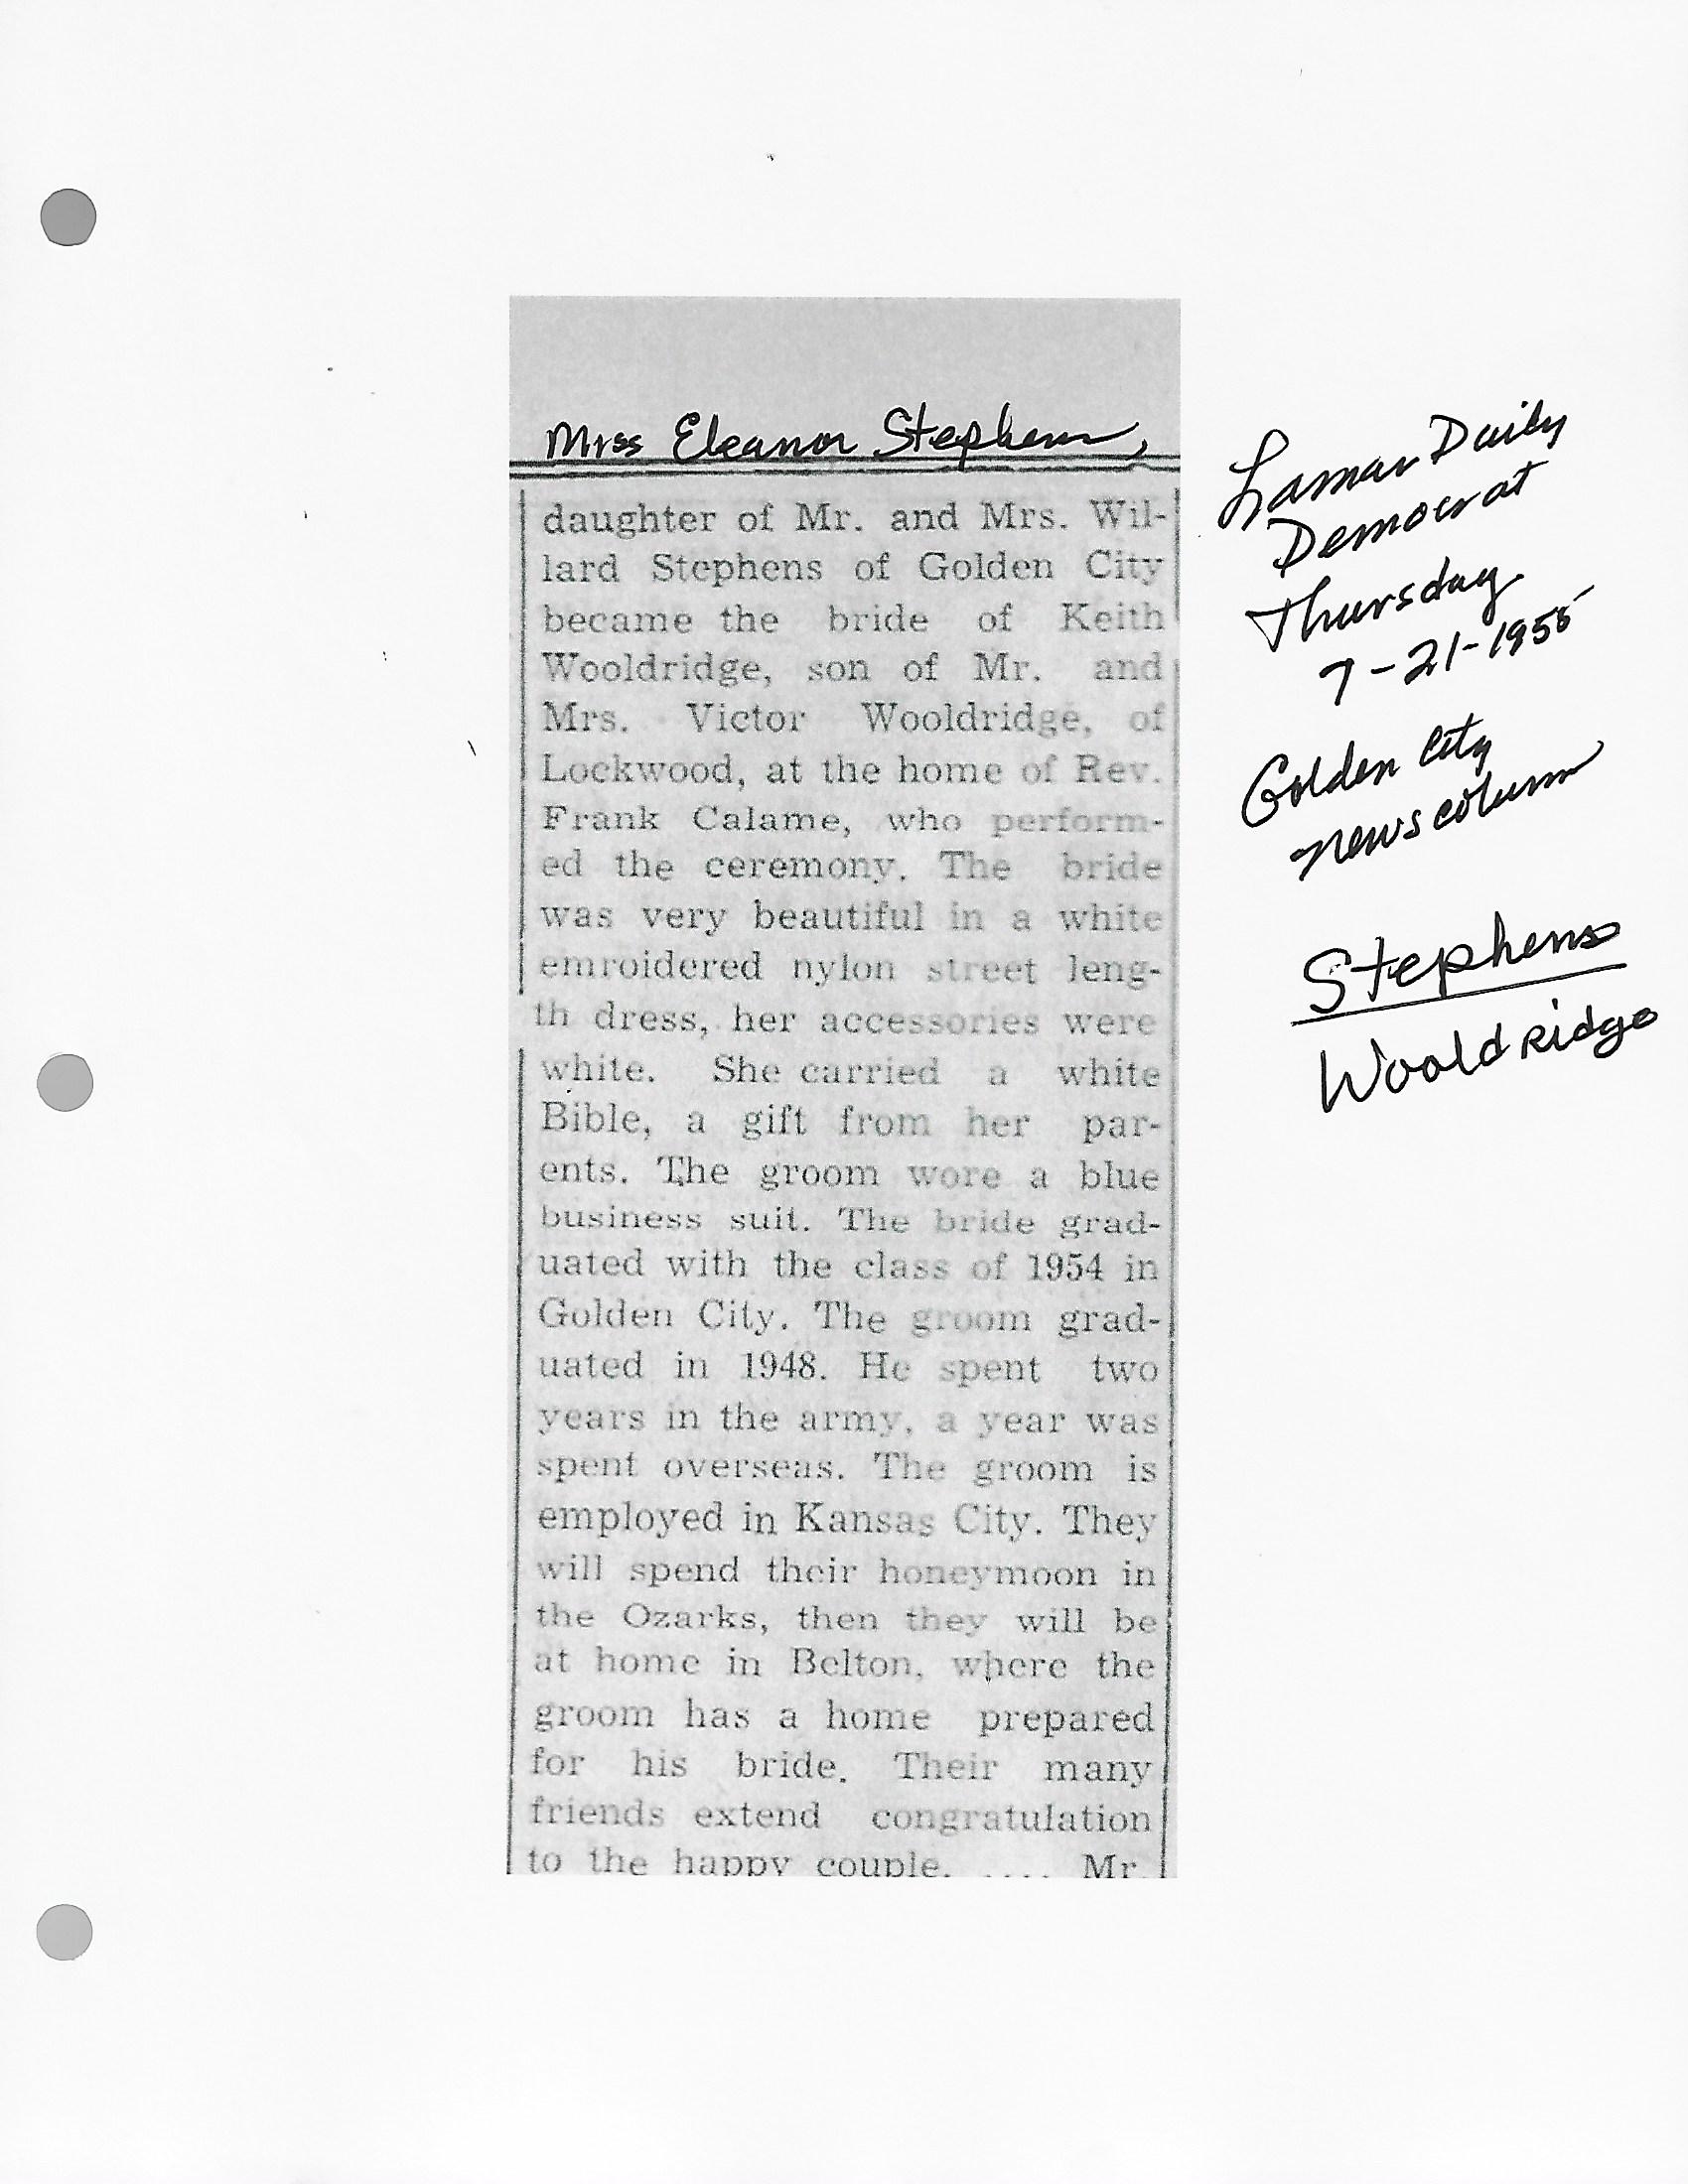 Miss Eleanor Stephens,
daughter of Mr. and Mrs. Wil-
lard Stephens of Golden City
became the bride of Keith
Wooldridge, son of Mr. and
Mrs. Victor Wooldridge, of
Lockwood, at the home of Rev.
Frank Calame, who perform-
ed the ceremony. The bride
was very beautiful in a white
emroidered nylon street leng-
th dress, her accessories were
white. She carried a white
Bible, a gift from her par-
ents. The groom wore a blue
business suit. The bride grad-
uated with the class of 1954 in
Golden City. The groom grad-
uated in 1948. He spent two
years in the army, a year was
spent overseas. The groom is
employed in Kansas City. They
will spend their honeymoon in
the Ozarks, then they will be
at home in Belton, where the
groom has a home prepared
for his bride. Their many
friends extend congratulation
to the happy couple. .... Mr.
Lamar Daily
Democrat
Thursday
7-21-1955
Golden City
news column
Stephens
Wooldridge